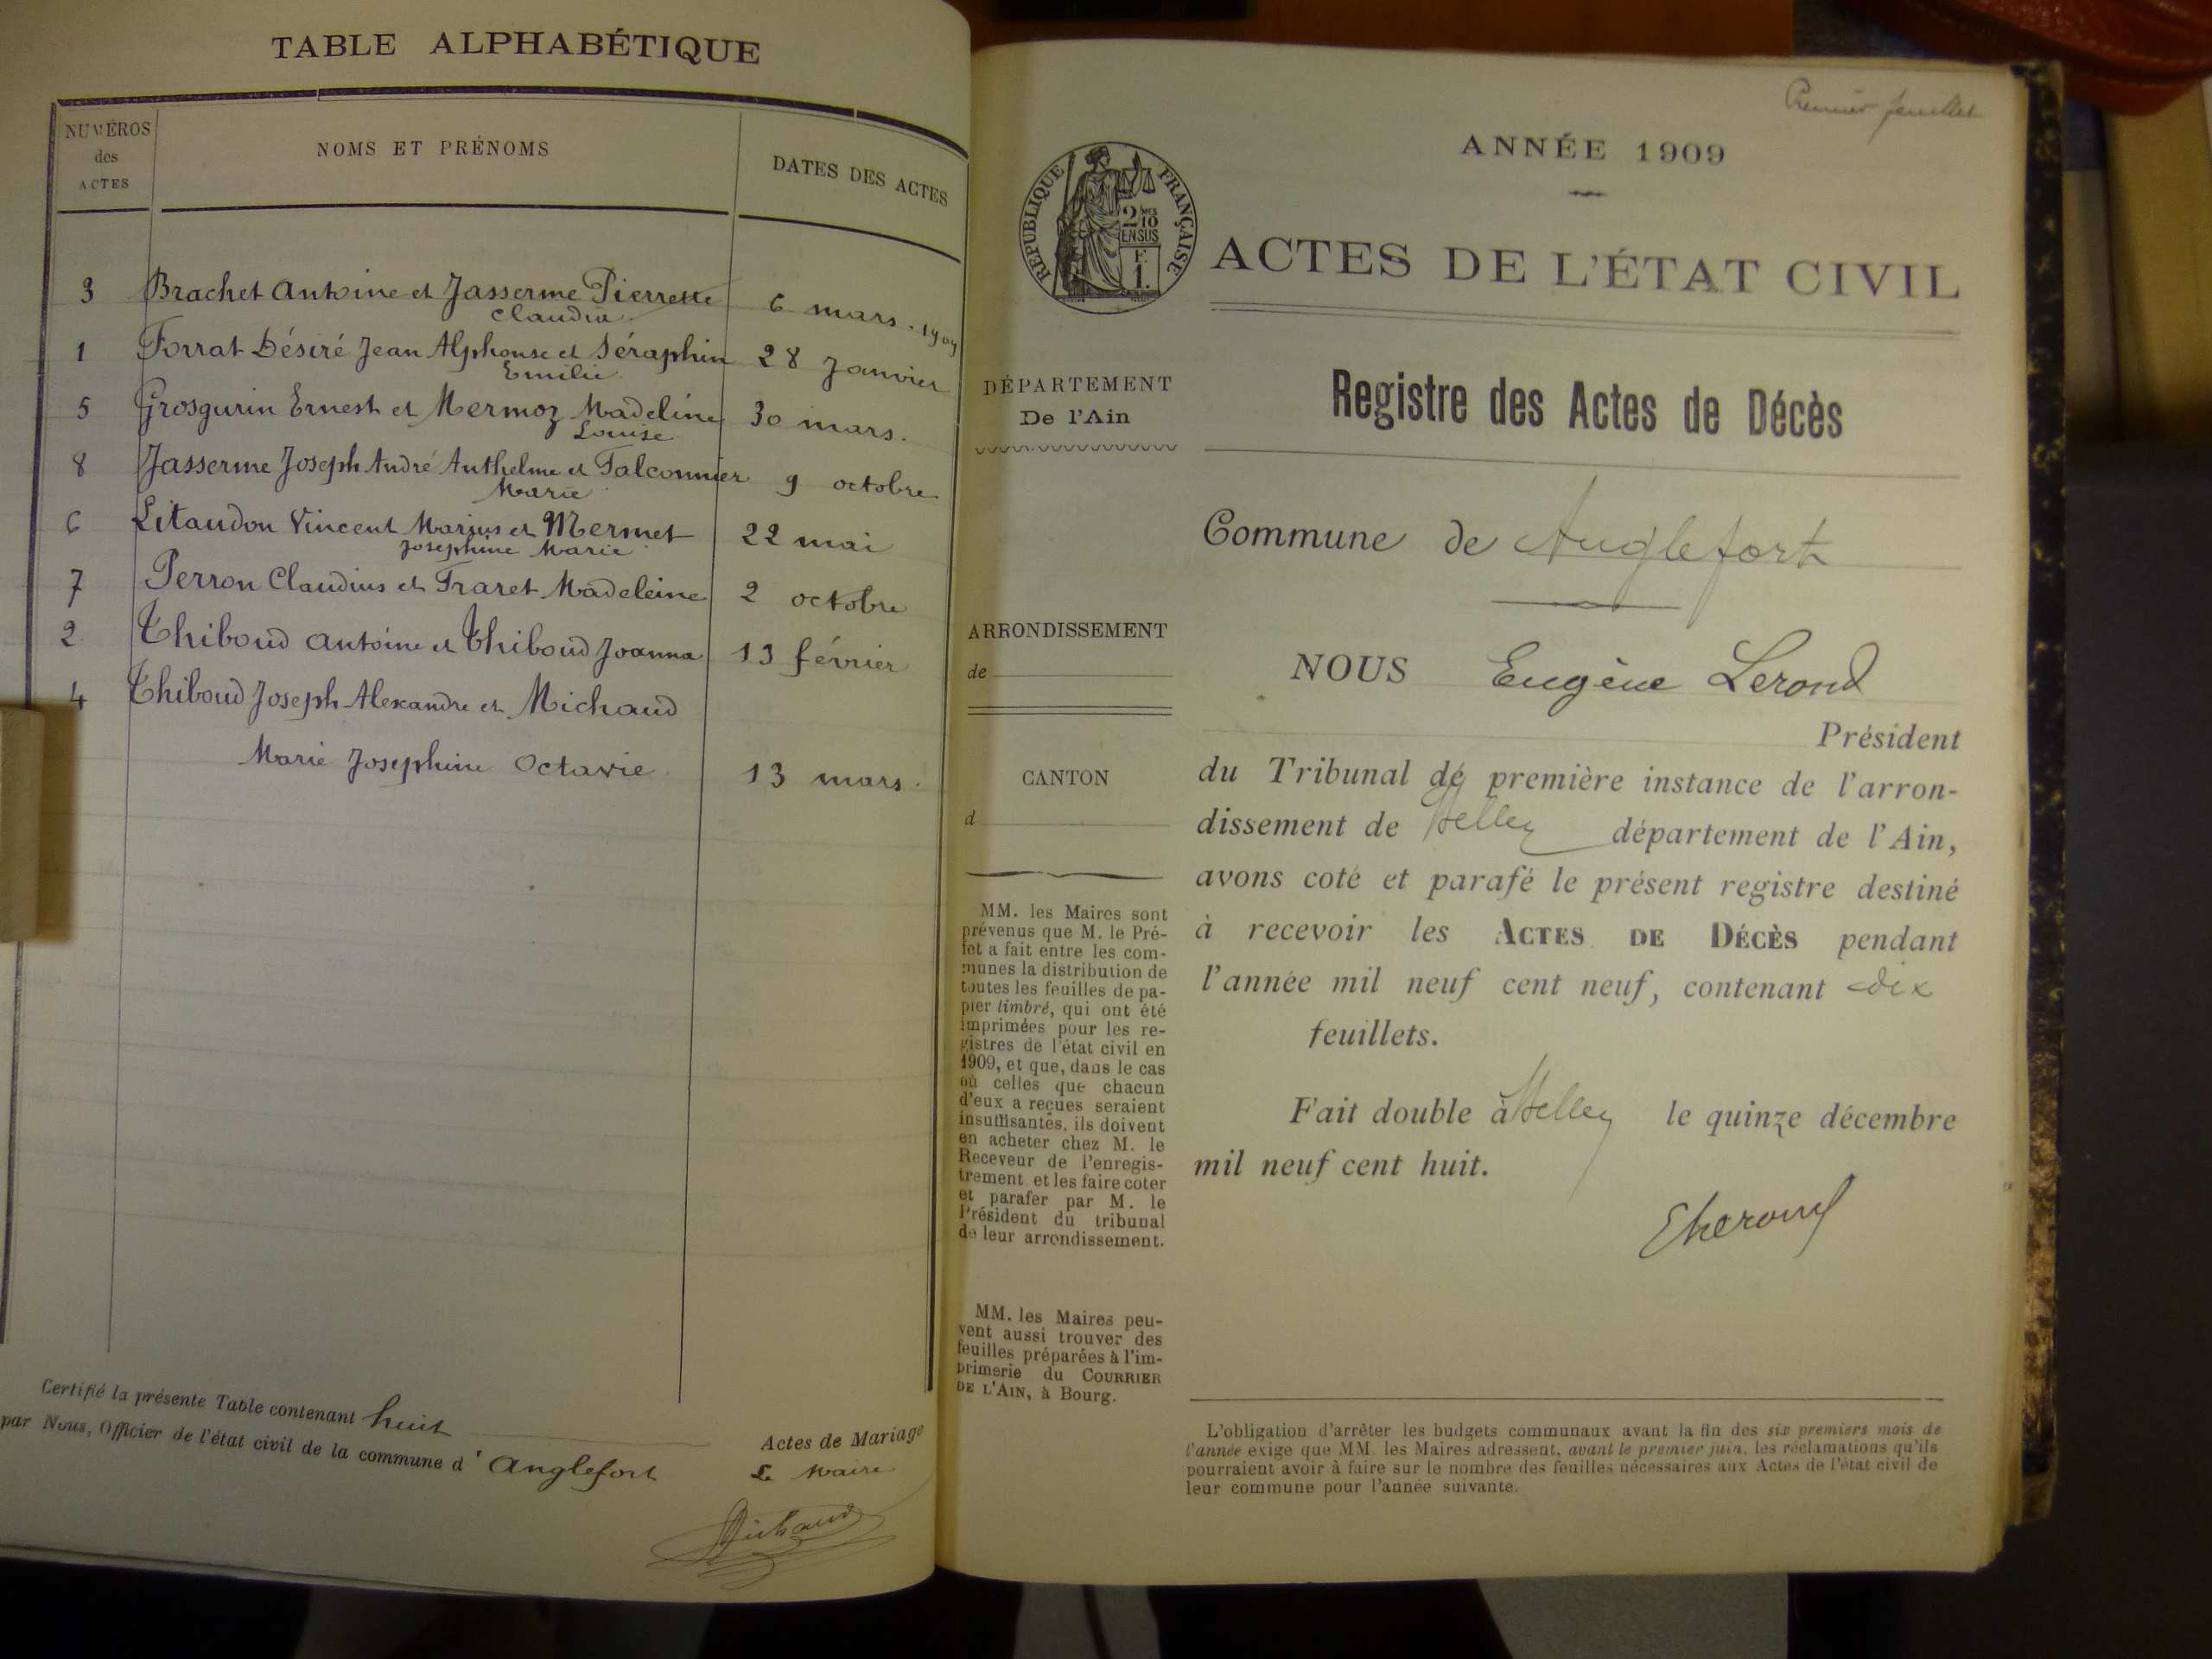 TABLE ALPHABÉTIQUE
NUMÉROS
des
ACTES
NOMS ET PRÉNOMS
DATES DES ACTES
3 Brachet Antoine et Jasserme Pierrette 6 mars. 1909
Claudia
1 Forrat Désiré Jean Alphonse et Séraphin 28 Janvier
Emilie
5 Grosgurin Ernest et Mermoz Madeline 30 mars.
Louise
8 Jasserme Joseph André Anthelme et Falconnier 9 octobre
Marie
6 Litaudon Vincent Marius et Mermet 22 mai
Josephine Marie
7 Perron Claudius et Fraret Madeleine 2 octobre
2 Thiboud Antoine et Thiboud Joanna 13 février
4 Thiboud Joseph Alexandre et Michaud
Marie Josephine Octavie 13 mars.
Certifié la présente Table contenant huit Actes de Mariage
par Nous, Officier de l'état civil de la commune d'Anglefort Le Maire
Michaud
Premier feuillet
ANNÉE 1909
RÉPUBLIQUE FRANÇAISE
2 MES 10
EN SUS
F.
1.
ACTES DE L'ÉTAT CIVIL
DÉPARTEMENT
De l'Ain
Registre des Actes de Décès
Commune de Anglefort
ARRONDISSEMENT
de
CANTON
d
NOUS Eugène Lerond
Président
du Tribunal de première instance de l'arron-
dissement de Belley département de l'Ain,
avons coté et parafé le présent registre destiné
à recevoir les ACTES DE DÉCÈS pendant
l'année mil neuf cent neuf, contenant dix
feuillets.
Fait double à Belley le quinze décembre
mil neuf cent huit.
ELerond
MM. les Maires sont
prévenus que M. le Pré-
fet a fait entre les com-
munes la distribution de
toutes les feuilles de pa-
pier timbré, qui ont été
imprimées pour les re-
gistres de l'état civil en
1909, et que, dans le cas
où celles que chacun
d'eux a reçues seraient
insuffisantes, ils doivent
en acheter chez M. le
Receveur de l'enregis-
trement et les faire coter
et parafer par M. le
Président du tribunal
de leur arrondissement.
MM. les Maires peu-
vent aussi trouver des
feuilles préparées à l'im-
primerie du COURRIER
DE L'AIN, à Bourg.
L'obligation d'arrêter les budgets communaux avant la fin des six premiers mois de
l'année exige que MM. les Maires adressent, avant le premier juin, les réclamations qu'ils
pourraient avoir à faire sur le nombre des feuilles nécessaires aux Actes de l'état civil de
leur commune pour l'année suivante.